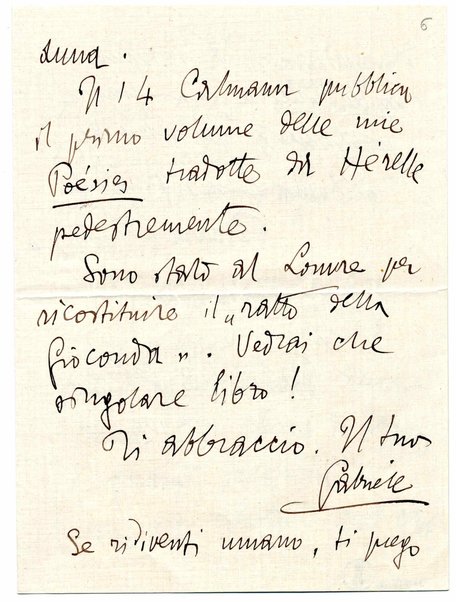 6
luna.
Il 14 Calmann pubblica
il primo volume delle mie
Poésies tradotte da Hérelle
pedestremente.
Sono stato al Louvre per
ricostituire il „ratto della
Gioconda„. Vedrai che
singolare libro!
Ti abbraccio. Il tuo
Gabriele
Se ridiventi umano, ti prego